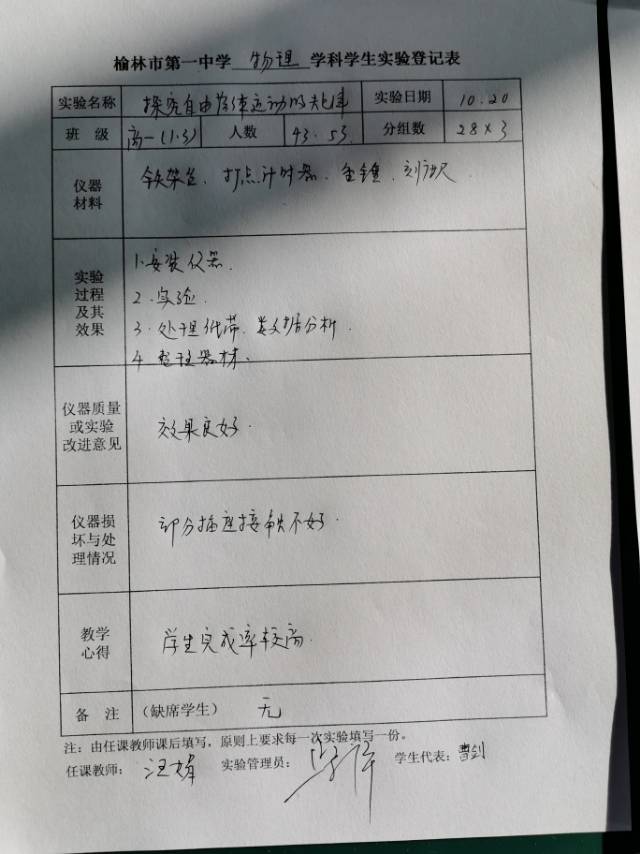 榆林市第一中学 物理 学科学生实验登记表
实验名称 探究自由落体运动的规律 实验日期 10.20
班 级 高一(1.3) 人数 43.53. 分组数 28×3
仪器材料 铁架台、打点计时器、重锤、刻度尺.
实验过程及其效果
1.安装仪器.
2.实验.
3.处理纸带、数据分析.
4.整理器材.
仪器质量或实验改进意见 效果良好.
仪器损坏与处理情况 部分插座接触不好.
教学心得 学生完成率较高.
备 注 (缺席学生) 无
注：由任课教师课后填写，原则上要求每一次实验填写一份。
任课教师： 汪娟 实验管理员： 学生代表：曹剑